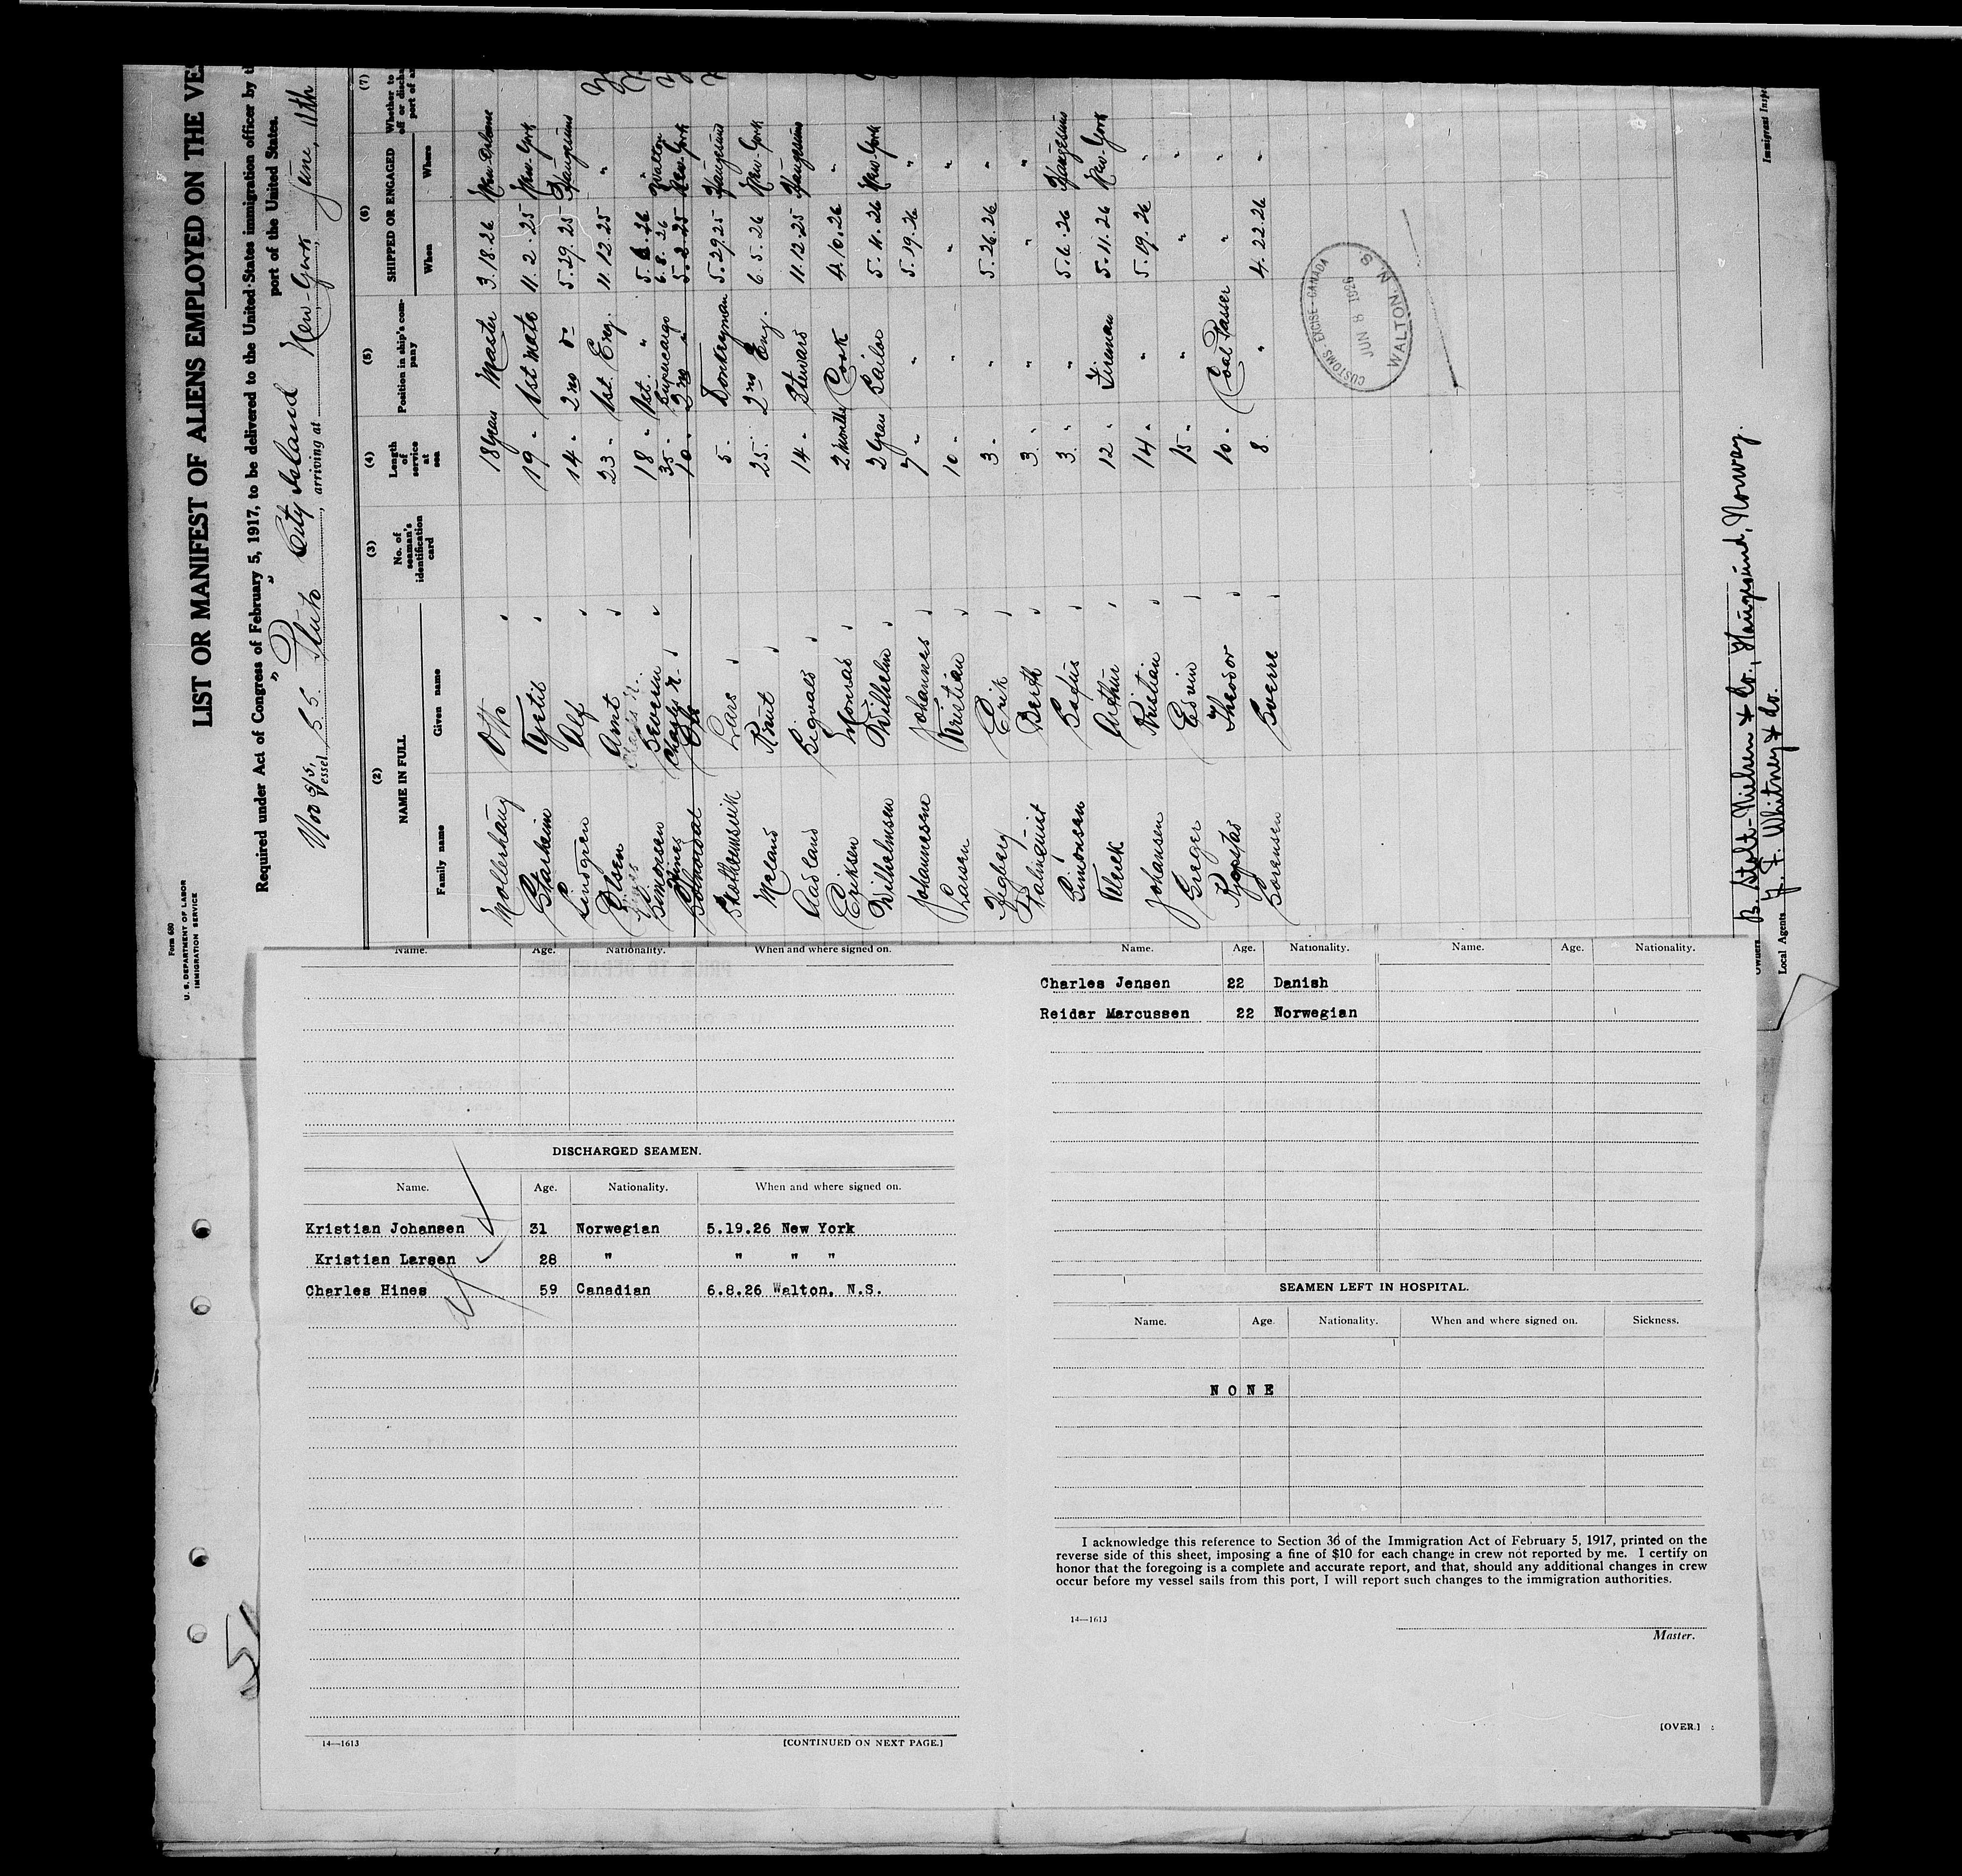 Form 680
U. S. DEPARTMENT OF LABOR
IMMIGRATION SERVICE
LIST OR MANIFEST OF ALIENS EMPLOYED ON THE VE
Required under Act of Congress of February 5, 1917, to be delivered to the United States immigration officer by t
port of the United States.
Vessel S.S. Pluto City Island, arriving at New-York, June, 11th
(2) (3) (4) (5) (6) (7)
NAME IN FULL
No. of seaman's identification card
Length of service at sea
Position in ship's company
SHIPPED OR ENGAGED
Whether to
off or discha
port of a
Family name Given name When Where
Otto 18 Years Master 3.18.26 New-Orleans
Kjetil 19 " 1st mate 11.2.25 New-York
Lindgren Alf 14 " 2nd Do 5.29.25 Haugesund
Olsen Arnt 23 " 1st. Eng. 11.12.25 "
Simonsen Severin 18 " 1st. "
Hines Charly 35 " Supercargo 6.8.26 Walton
10 " 2nd " New-York
Skotheimsvik Lars 5 " Donkeyman 5.29.25 Haugesund
Meland Knut 25 " 2nd Eng. 6.5.26 New-York
Aadland Sigvald 14 " Steward 11.12.25 Haugesund
Eriksen Konrad 2 months Cook 4.10.26 "
Wilhelmsen Wilhelm 2 Years Sailor 5.4.26 New-York
Johannesen Johannes 7 " " 5.19.26 "
Larsen Kristian 10 " " " "
Erik 3 " " 5.26.26 "
Palmquist Berth 3 " " " "
Simonsen 3 " " 5.6.26 Haugesund
Arthur 12 " Fireman 5.11.26 New-York
Johansen Kristian 14 " " 5.19.26 "
Greger Edvin 15 " " " "
Theodor 10 " Coal Passer " "
Sorensen Sverre 8 " 4.22.26 "
CUSTOMS - EXCISE - CANADA
JUN 8 1926
WALTON, N.S.
Immigrant Inspe
Owners B. Stolt-Nielsen & Co., Haugesund, Norway.
Local Agents Y. F. Whitney & Co.
Name. Age. Nationality. When and where signed on.
DISCHARGED SEAMEN.
Name. Age. Nationality. When and where signed on.
Kristian Johansen 31 Norwegian 5.19.26 New York
Kristian Larsen 28 " " " "
Charles Hines 59 Canadian 6.8.26 Walton, N.S.
14—1613 [CONTINUED ON NEXT PAGE.]
Name. Age. Nationality. Name. Age. Nationality.
Charles Jensen 22 Danish
Reidar Marcussen 22 Norwegian
SEAMEN LEFT IN HOSPITAL.
Name. Age. Nationality. When and where signed on. Sickness.
N O N E
I acknowledge this reference to Section 36 of the Immigration Act of February 5, 1917, printed on the
reverse side of this sheet, imposing a fine of $10 for each change in crew not reported by me. I certify on
honor that the foregoing is a complete and accurate report, and that, should any additional changes in crew
occur before my vessel sails from this port, I will report such changes to the immigration authorities.
14—1613
Master.
[OVER.]
5